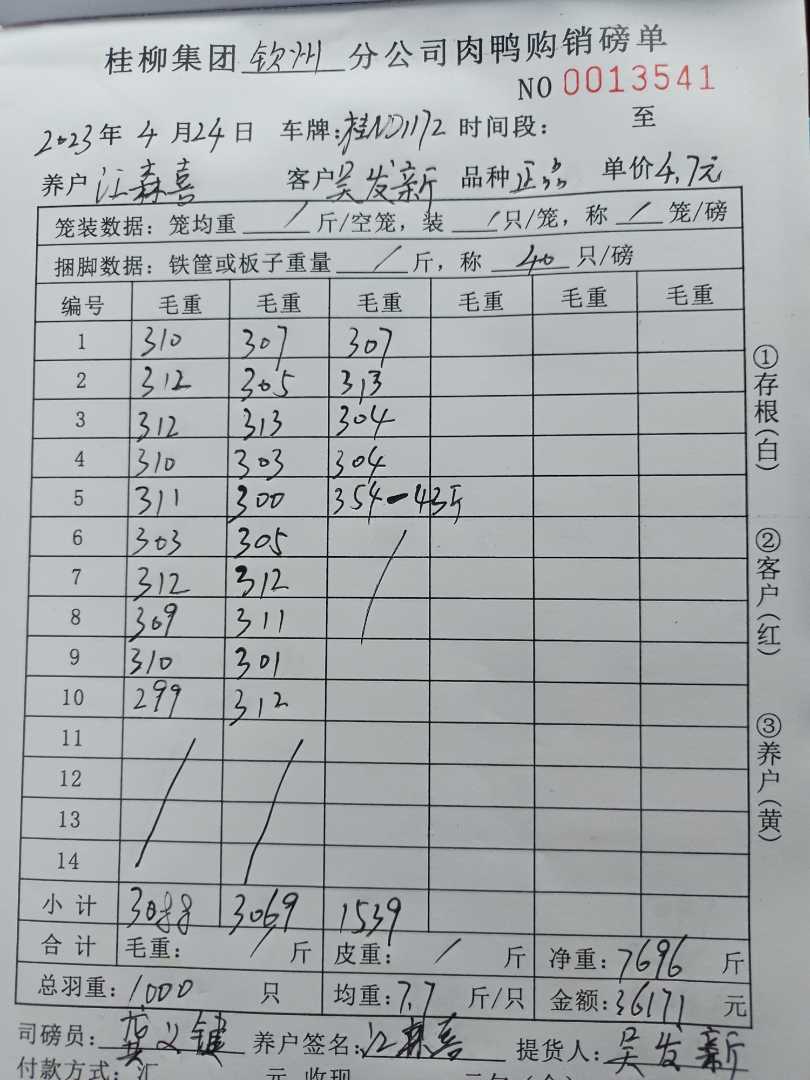 桂柳集团钦州分公司肉鸭购销磅单
NO 0013541
2023年4月24日 车牌:桂ND1172 时间段: 至
养户江森喜 客户吴发新 品种正品 单价4.7元
笼装数据:笼均重 / 斤/空笼,装 / 只/笼,称 / 笼/磅
捆脚数据:铁筐或板子重量 / 斤,称 40 只/磅
编号 毛重 毛重 毛重 毛重 毛重 毛重
1 310 307 307
2 312 305 313
3 312 313 304
4 310 303 304
5 311 300 354-43斤
6 303 305 /
7 312 312
8 309 311
9 310 301
10 299 312
11 / /
12
13
14
小计 3088 3069 1539
合计 毛重: / 斤 皮重: / 斤 净重:7696 斤
总羽重:1000 只 均重:7.7 斤/只 金额:36171 元
司磅员: 养户签名:江森喜 提货人:吴发新
付款方式:汇 元 收现
①存根(白)
②客户(红)
③养户(黄)